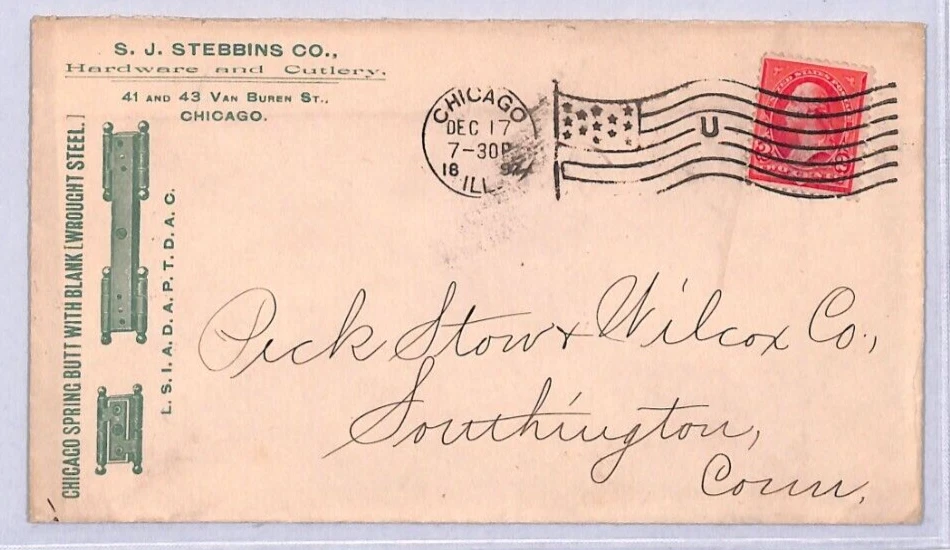 S. J. STEBBINS CO.,
Hardware and Cutlery,
41 AND 43 VAN BUREN ST.,
CHICAGO.
CHICAGO SPRING BUTT WITH BLANK [WROUGHT STEEL.]
L. S. I. A. D. A. P. T. D. A. C.
CHICAGO
DEC 17
7-30P
18
ILL.
U
Peck Stow & Wilcox Co.,
Southington,
Conn.